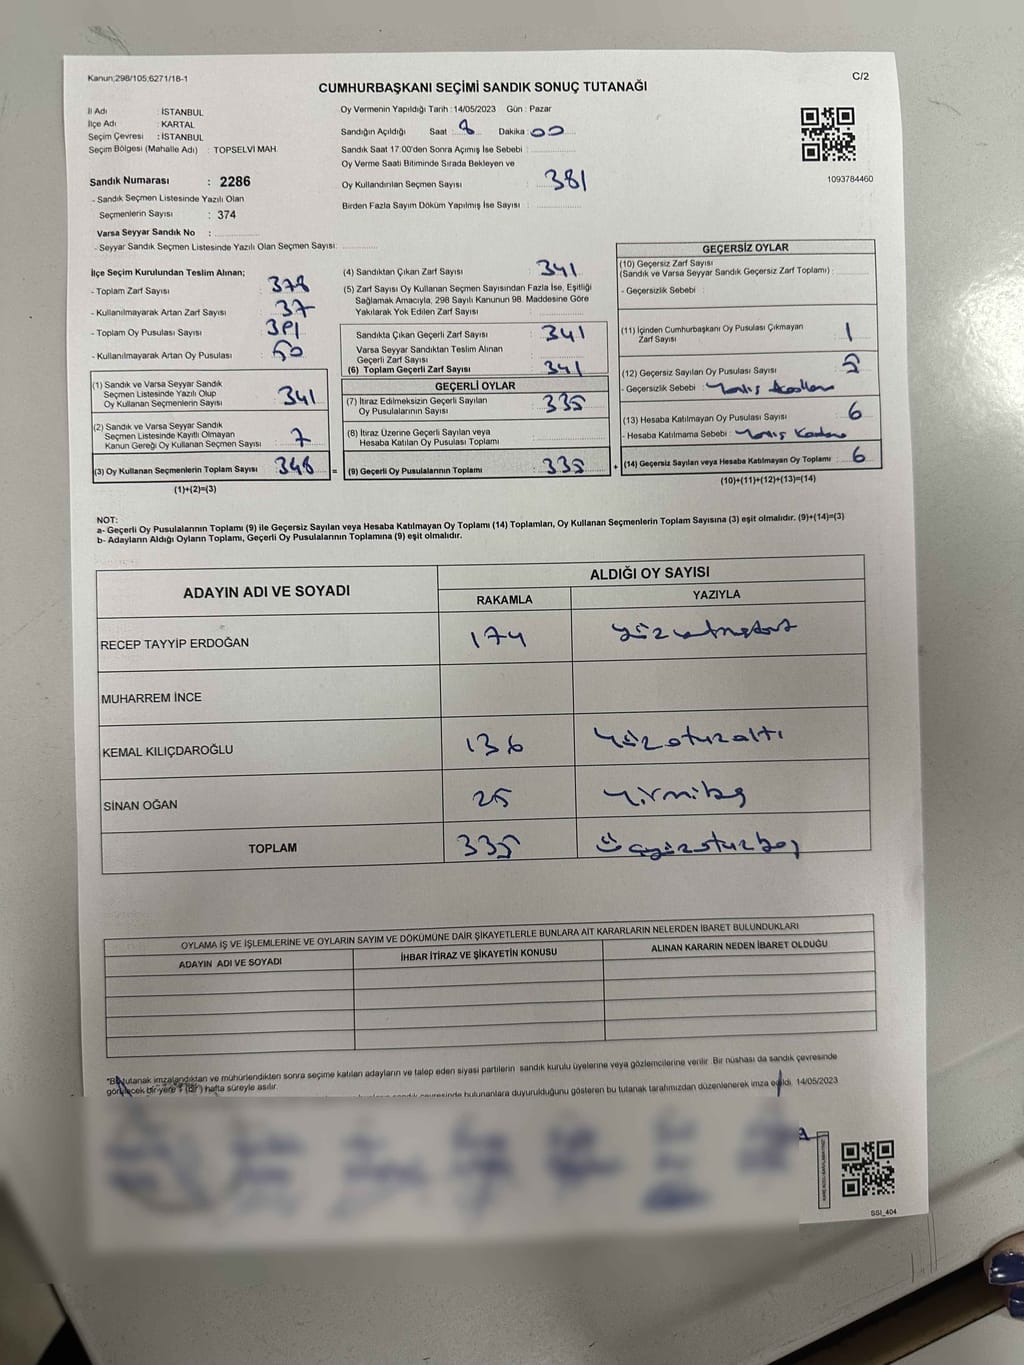 Kanun;298/105;6271/18-1
C/2
CUMHURBAŞKANI SEÇİMİ SANDIK SONUÇ TUTANAĞI
İl Adı : İSTANBUL
İlçe Adı : KARTAL
Seçim Çevresi : İSTANBUL
Seçim Bölgesi (Mahalle Adı) : TOPSELVİ MAH.
Sandık Numarası : 2286
- Sandık Seçmen Listesinde Yazılı Olan
Seçmenlerin Sayısı : 374
Varsa Seyyar Sandık No :
- Seyyar Sandık Seçmen Listesinde Yazılı Olan Seçmen Sayısı:
Oy Vermenin Yapıldığı Tarih : 14/05/2023 Gün : Pazar
Sandığın Açıldığı Saat : 8 Dakika : 00
Sandık Saat 17:00'den Sonra Açımış İse Sebebi :
Oy Verme Saati Bitiminde Sırada Bekleyen ve
Oy Kullandırılan Seçmen Sayısı : 381
Birden Fazla Sayım Döküm Yapılmış İse Sayısı :
1093784460
İlçe Seçim Kurulundan Teslim Alınan;
- Toplam Zarf Sayısı : 378
- Kullanılmayarak Artan Zarf Sayısı : 37
- Toplam Oy Pusulası Sayısı
- Kullanılmayarak Artan Oy Pusulası :
(1) Sandık ve Varsa Seyyar Sandık
Seçmen Listesinde Yazılı Olup
Oy Kullanan Seçmenlerin Sayısı : 341
(2) Sandık ve Varsa Seyyar Sandık
Seçmen Listesinde Kayıtlı Olmayan
Kanun Gereği Oy Kullanan Seçmen Sayısı : 7
(3) Oy Kullanan Seçmenlerin Toplam Sayısı : 348
=
(1)+(2)=(3)
(4) Sandıktan Çıkan Zarf Sayısı : 341
(5) Zarf Sayısı Oy Kullanan Seçmen Sayısından Fazla İse, Eşitliği
Sağlamak Amacıyla, 298 Sayılı Kanunun 98. Maddesine Göre
Yakılarak Yok Edilen Zarf Sayısı :
Sandıkta Çıkan Geçerli Zarf Sayısı : 341
Varsa Seyyar Sandıktan Teslim Alınan
Geçerli Zarf Sayısı :
(6) Toplam Geçerli Zarf Sayısı : 341
GEÇERLİ OYLAR
(7) İtiraz Edilmeksizin Geçerli Sayılan
Oy Pusulalarının Sayısı : 335
(8) İtiraz Üzerine Geçerli Sayılan veya
Hesaba Katılan Oy Pusulası Toplamı :
(9) Geçerli Oy Pusulalarının Toplamı : 335
+
GEÇERSİZ OYLAR
(10) Geçersiz Zarf Sayısı
(Sandık ve Varsa Seyyar Sandık Geçersiz Zarf Toplamı) :
- Geçersizlik Sebebi :
(11) İçinden Cumhurbaşkanı Oy Pusulası Çıkmayan
Zarf Sayısı : 1
(12) Geçersiz Sayılan Oy Pusulası Sayısı :
- Geçersizlik Sebebi :
(13) Hesaba Katılmayan Oy Pusulası Sayısı : 6
- Hesaba Katılmama Sebebi :
(14) Geçersiz Sayılan veya Hesaba Katılmayan Oy Toplamı : 6
(10)+(11)+(12)+(13)=(14)
NOT:
a- Geçerli Oy Pusulalarının Toplamı (9) ile Geçersiz Sayılan veya Hesaba Katılmayan Oy Toplamı (14) Toplamları, Oy Kullanan Seçmenlerin Toplam Sayısına (3) eşit olmalıdır. (9)+(14)=(3)
b- Adayların Aldığı Oyların Toplamı, Geçerli Oy Pusulalarının Toplamına (9) eşit olmalıdır.
ADAYIN ADI VE SOYADI
ALDIĞI OY SAYISI
RAKAMLA YAZIYLA
RECEP TAYYİP ERDOĞAN 174 yüzyetmişdört
MUHARREM İNCE
KEMAL KILIÇDAROĞLU 136 yüzotuzaltı
SİNAN OĞAN 25 yirmibeş
TOPLAM 335 üçyüzotuzbeş
OYLAMA İŞ VE İŞLEMLERİNE VE OYLARIN SAYIM VE DÖKÜMÜNE DAİR ŞİKAYETLERLE BUNLARA AİT KARARLARIN NELERDEN İBARET BULUNDUKLARI
ADAYIN ADI VE SOYADI İHBAR İTİRAZ VE ŞİKAYETİN KONUSU ALINAN KARARIN NEDEN İBARET OLDUĞU
*Bu tutanak imzalandıktan ve mühürlendikten sonra seçime katılan adayların ve talep eden siyasi partilerin sandık kurulu üyelerine veya gözlemcilerine verilir. Bir nüshası da sandık çevresinde
görülecek bir yere 1 (bir) hafta süreyle asılır.
sandık çevresinde bulunanlara duyurulduğunu gösteren bu tutanak tarafımızdan düzenlenerek imza edildi. 14/05/2023
SSI_404